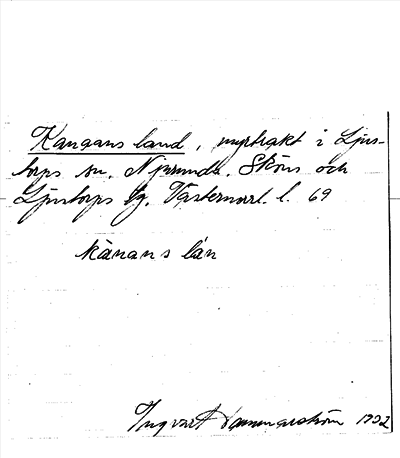 Kanaans land, myrtrakt i Ljus-
torps sn. Njurunda, Sköns och
Ljustorps tg. Västernorrl. l. 69
kànans làn
Ingvart Hammarström 1932